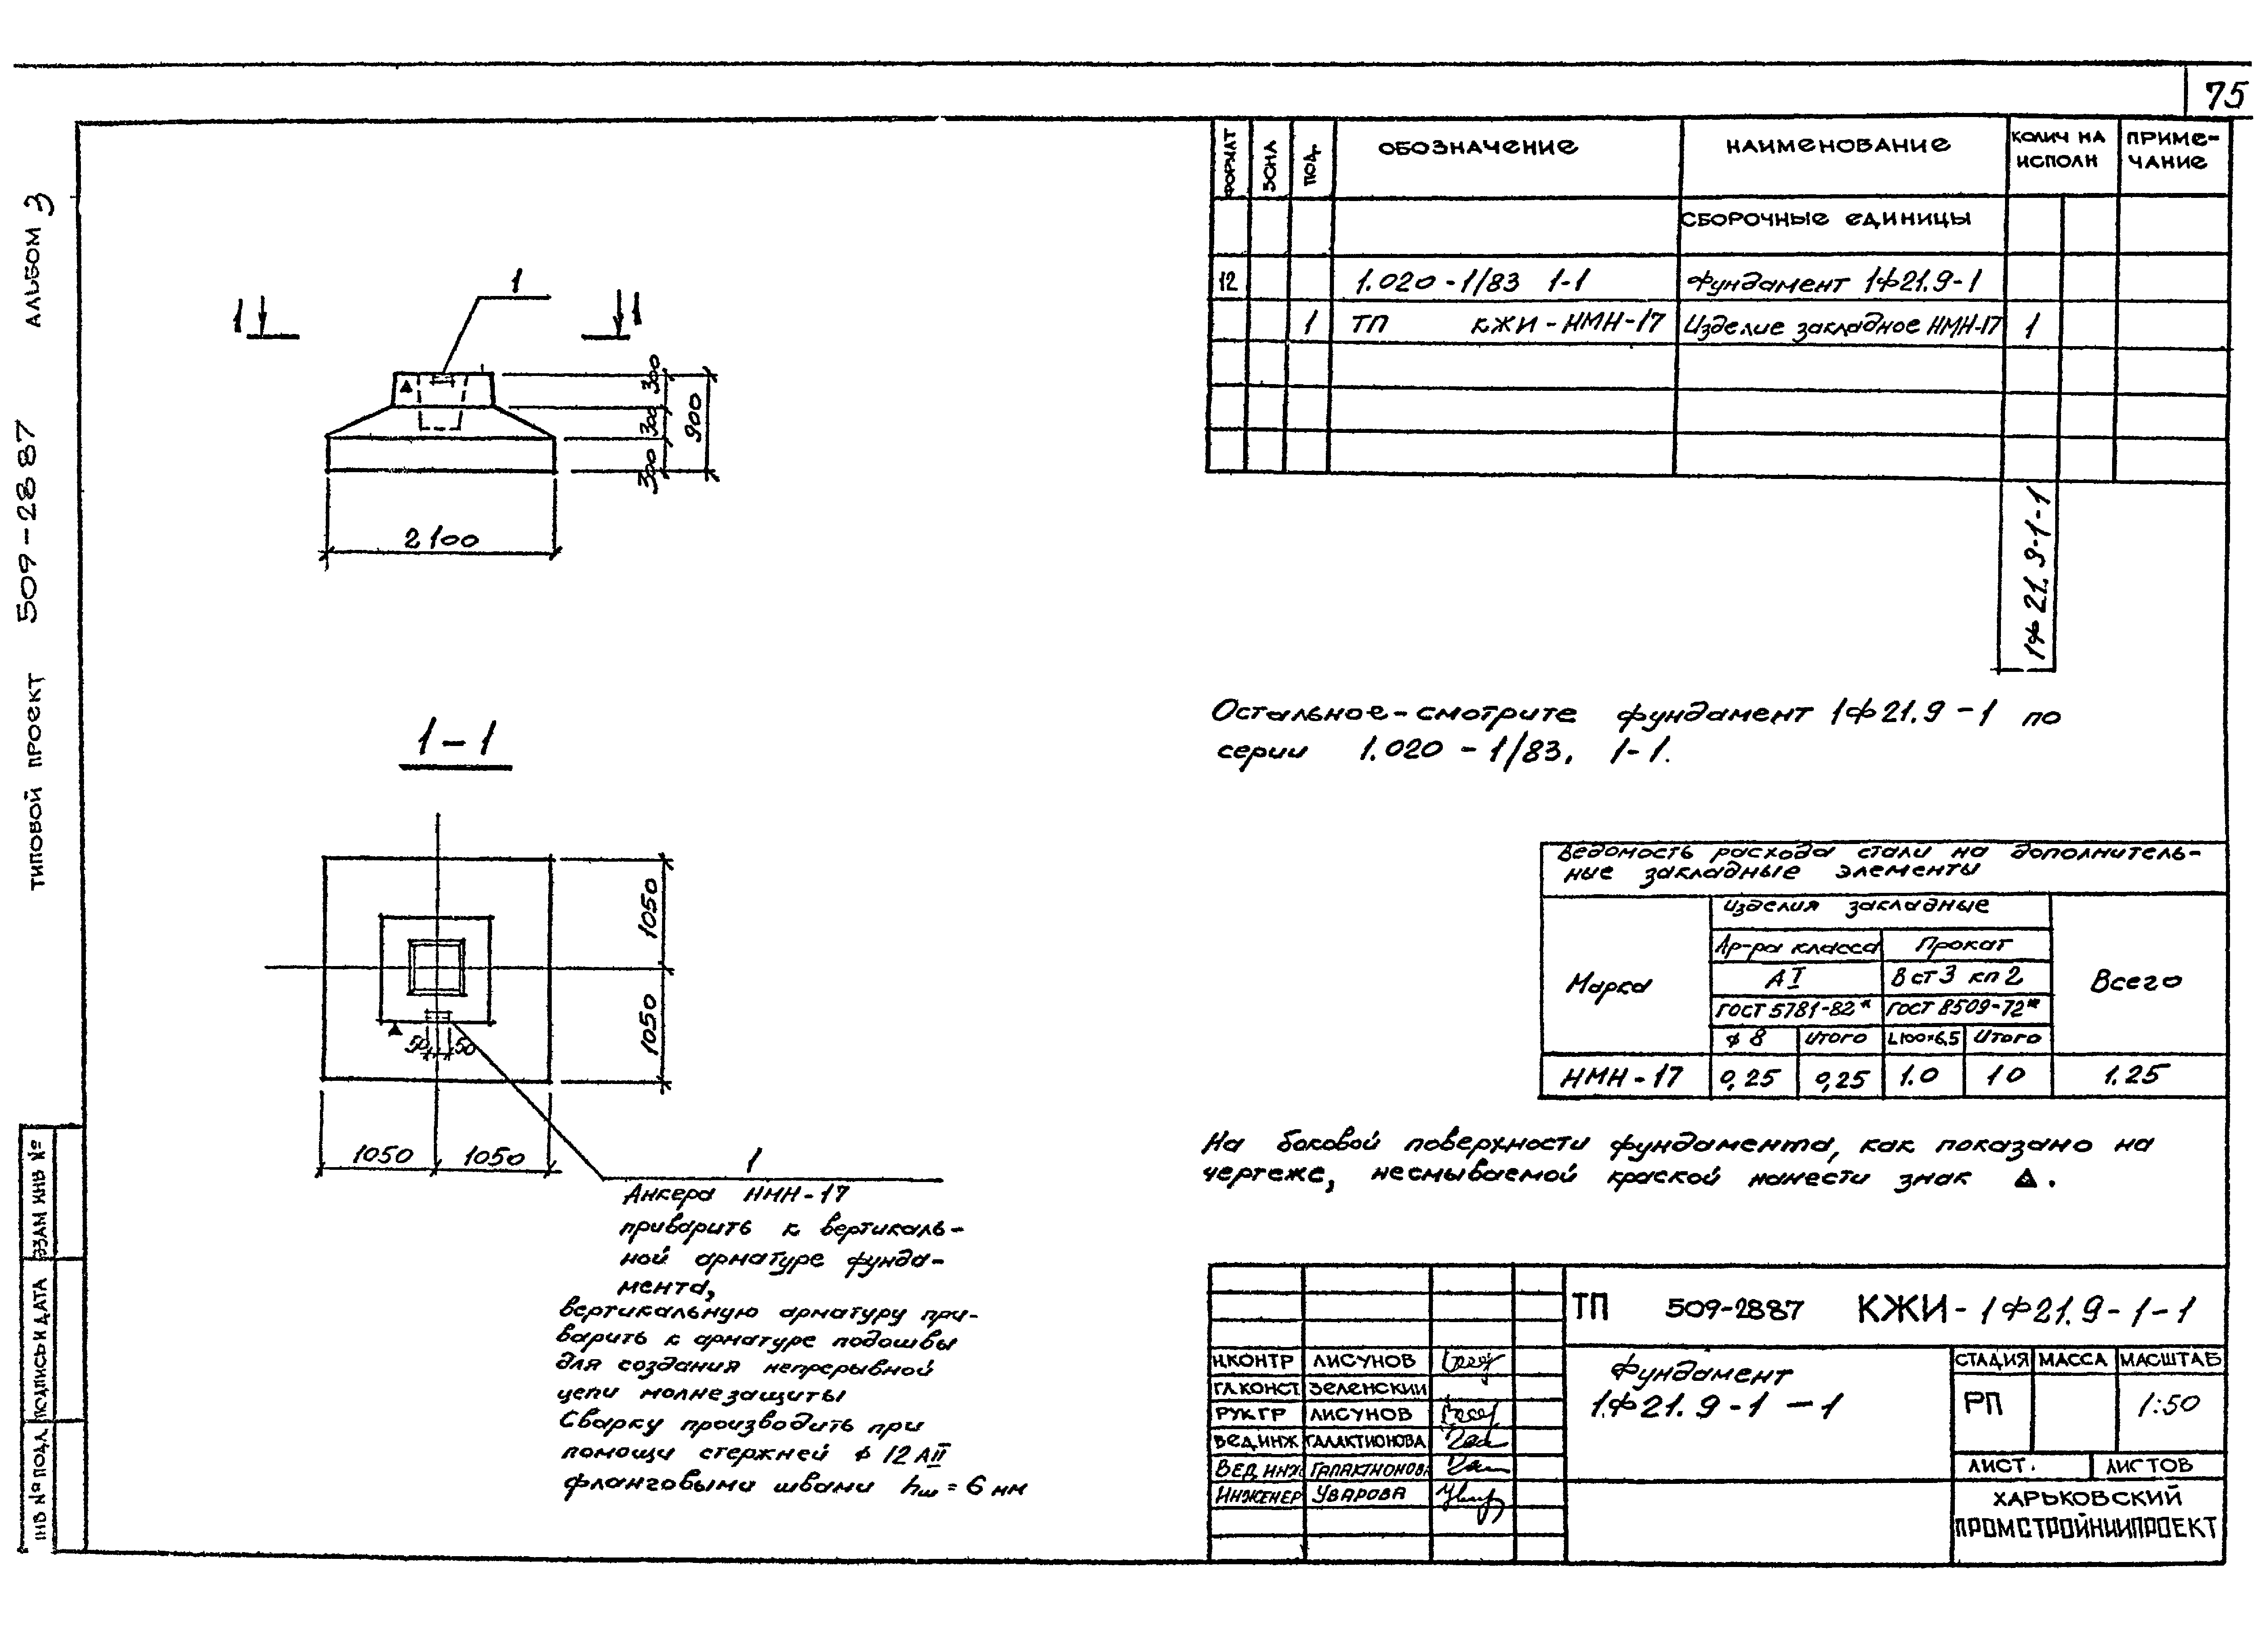 75
АЛЬБОМ 3
ТИПОВОЙ ПРОЕКТ 509-28 87
ВЗАМ ИНВ №
ПОДПИСЬ И ДАТА
ИНВ № ПОДЛ
1
1 1
300
300
300
900
2100
1-1
1050
1050
50 50
1050 1050
1
Анкера НМН-17
приварить к вертикаль-
ной арматуре фунда-
мента,
вертикальную арматуру при-
варить к арматуре подошвы
для создания непрерывной
цепи молнезащиты
Сварку производить при
помощи стержней ф 12 АII
фланговыми швами hш = 6 мм
ФОРМАТ ЗОНА ПОД. ОБОЗНАЧЕНИЕ НАИМЕНОВАНИЕ КОЛИЧ НА ИСПОЛН ПРИМЕ-ЧАНИЕ
СБОРОЧНЫЕ ЕДИНИЦЫ
12 1.020-1/83 1-1 Фундамент 1Ф21.9-1
1 ТП КЖИ-НМН-17 Изделие закладное НМН-17 1
1Ф 21.9-1-1
Остальное-смотрите фундамент 1Ф21.9-1 по
серии 1.020-1/83. 1-1.
Ведомость расхода стали на дополнитель-
ные закладные элементы
Марка Изделия закладные Всего
Ар-ра класса Прокат
АI Вст3 кп2
ГОСТ 5781-82* ГОСТ 8509-72*
ф 8 Итого L100×6,5 Итого
НМН-17 0,25 0,25 1.0 10 1.25
На боковой поверхности фундамента, как показано на
чертеже, несмываемой краской нанести знак ▲.
ТП 509-2887 КЖИ-1Ф21.9-1-1
Н.КОНТР ЛИСУНОВ
ГЛ.КОНСТ ЗЕЛЕНСКИЙ
РУК.ГР ЛИСУНОВ
ВЕД.ИНЖ ГАЛАКТИОНОВА
ВЕД.ИНЖ ГАЛАКТИОНОВА
ИНЖЕНЕР УВАРОВА
Фундамент
1Ф21.9-1-1
СТАДИЯ МАССА МАСШТАБ
РП 1:50
ЛИСТ. ЛИСТОВ
ХАРЬКОВСКИЙ
ПРОМСТРОЙНИИПРОЕКТ